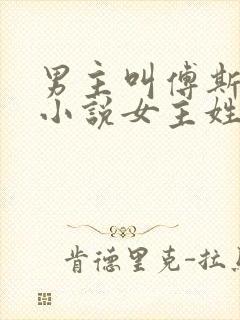 男主叫傅斯
小说女主姓
肯德里克-拉